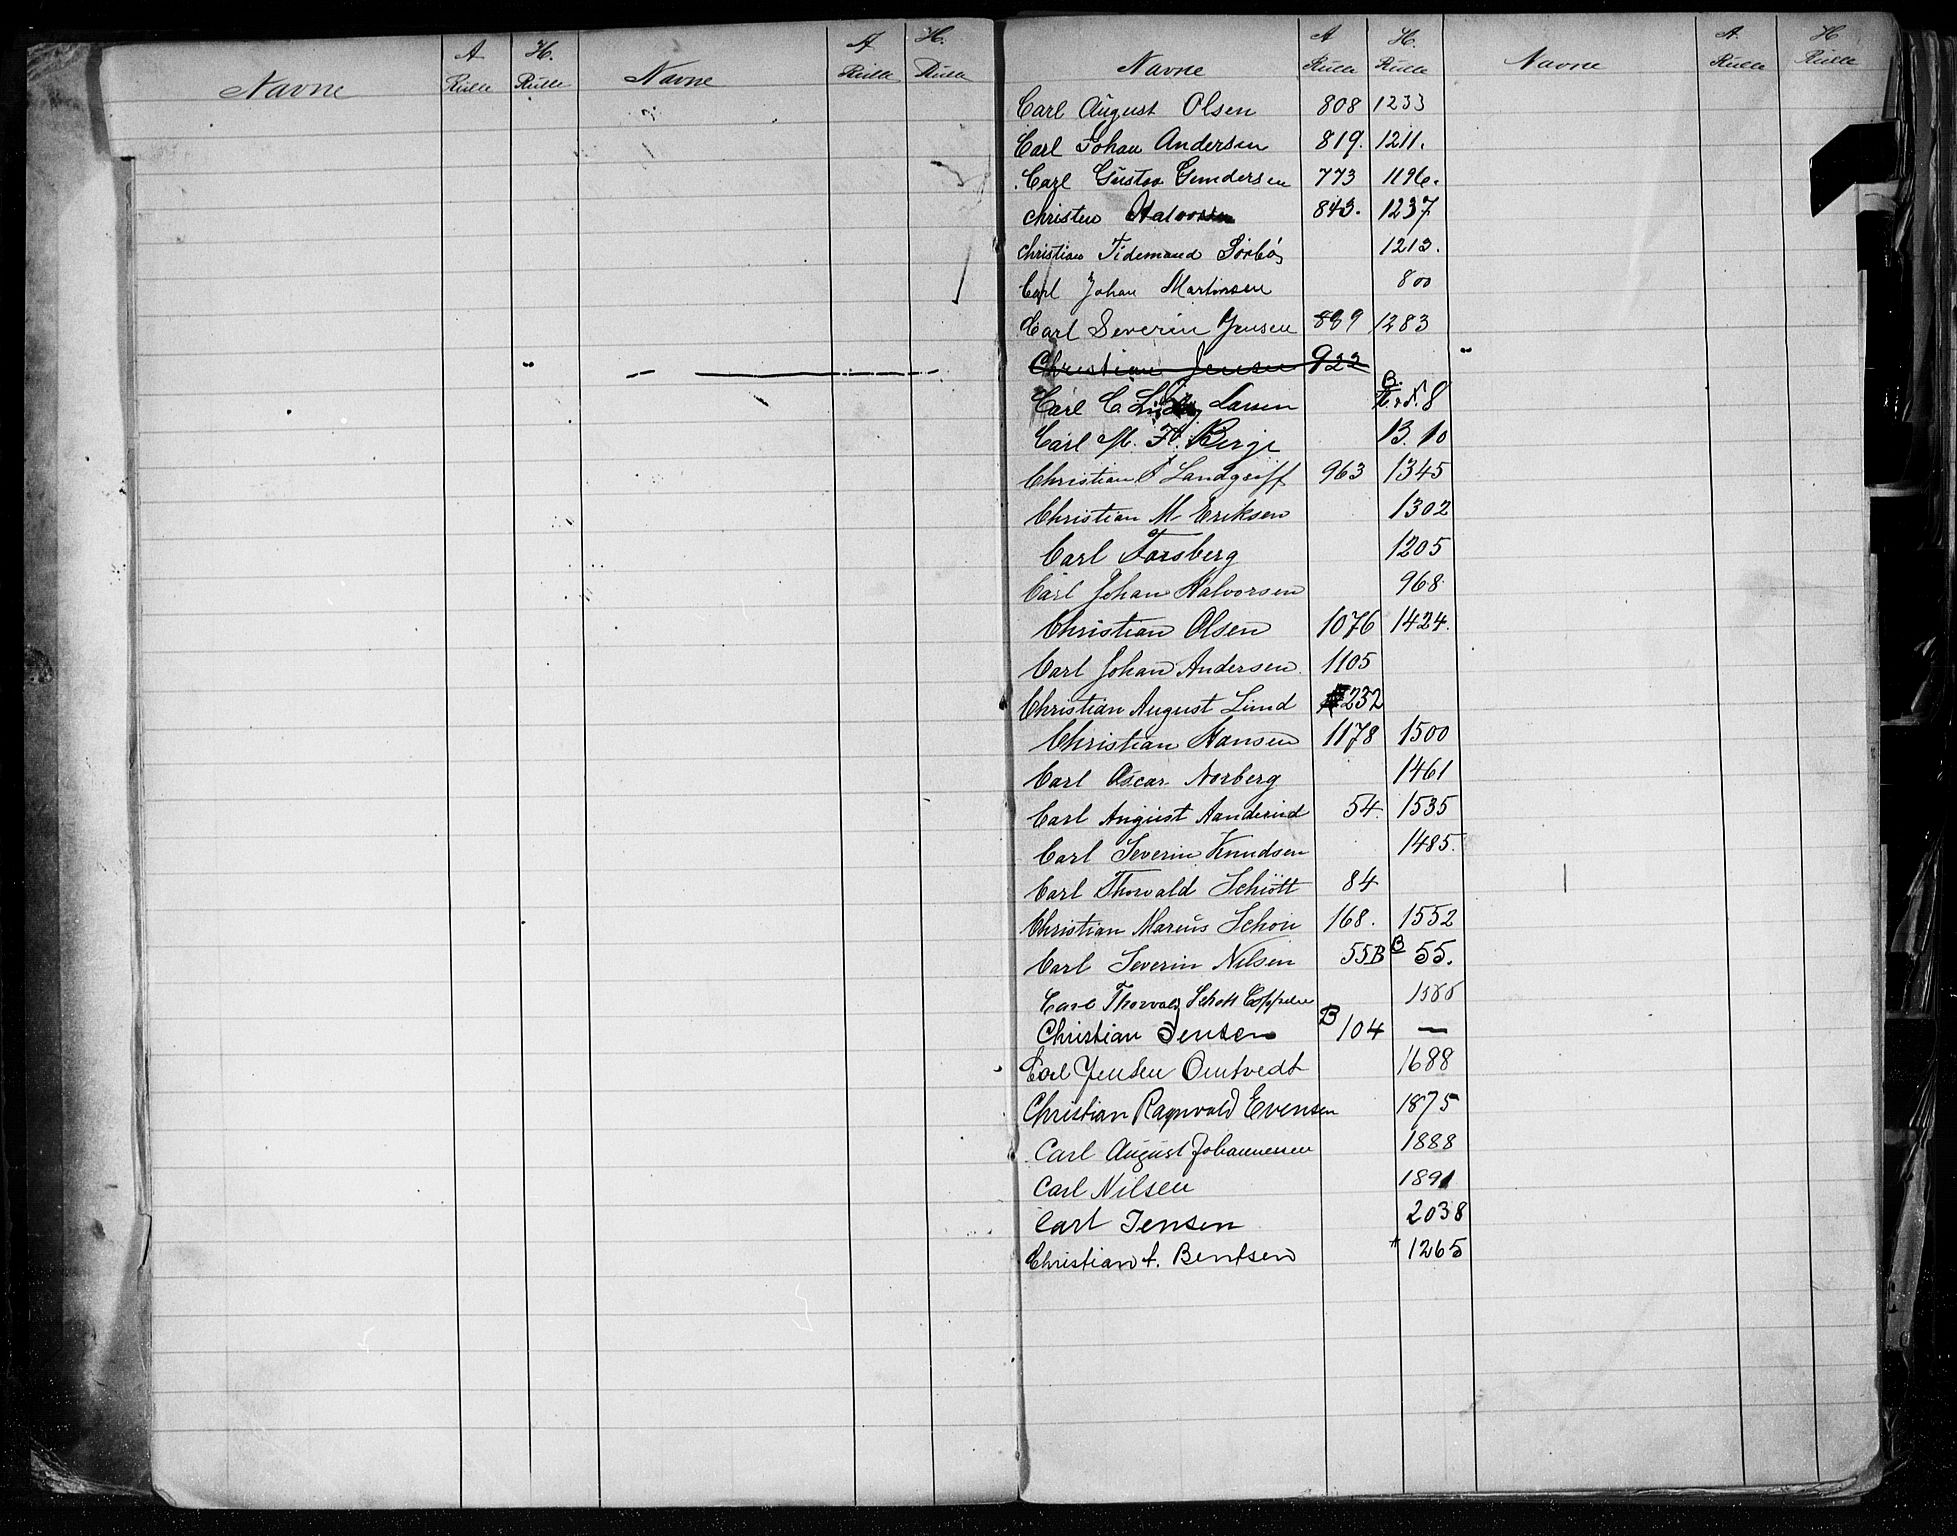 Navne A Rulle H. Rulle Navne A Rulle H. Rulle
Navne A Rulle H. Rulle Navne A. Rulle H Rulle
Carl August Olsen 808 1233
Carl Johan Andersen 819. 1211.
Carl Gustav Gundersen 773 1196.
Christen Halvorsen 843. 1237
Christian Tidemand Sørbø 1213.
Carl Johan Martinsen 800
Carl Severin Jensen 889 1283
Christian Jensen 922
Carl C. Larsen B. 8
Carl M. F. Berge 13.10
Christian Landgriff 963 1345
Christian M Eriksen 1302
Carl Forsberg 1205
Carl Johan Halvorsen 968
Christian Olsen 1076 1424.
Carl Johan Andersen. 1105
Christian August Lund 232
Christian Hansen 1178 1500
Carl Oscar Norberg 1461
Carl August Aanderud 54. 1535
Carl Severin Knudsen 1485.
Carl Thorvald Schiött 84
Christian Marius Schou 168. 1552
Carl Severin Nilsen 55B B 55.
Carl Thorvald Schøtt
Christian Jensen B 104 —
Carl Jensen Omtvedt 1688
Christian Ragnvald Evensen 1875
Carl August Johannessen 1888
Carl Nilsen 1891
Carl Jensen 2038
Christian A. Bentsen 1265